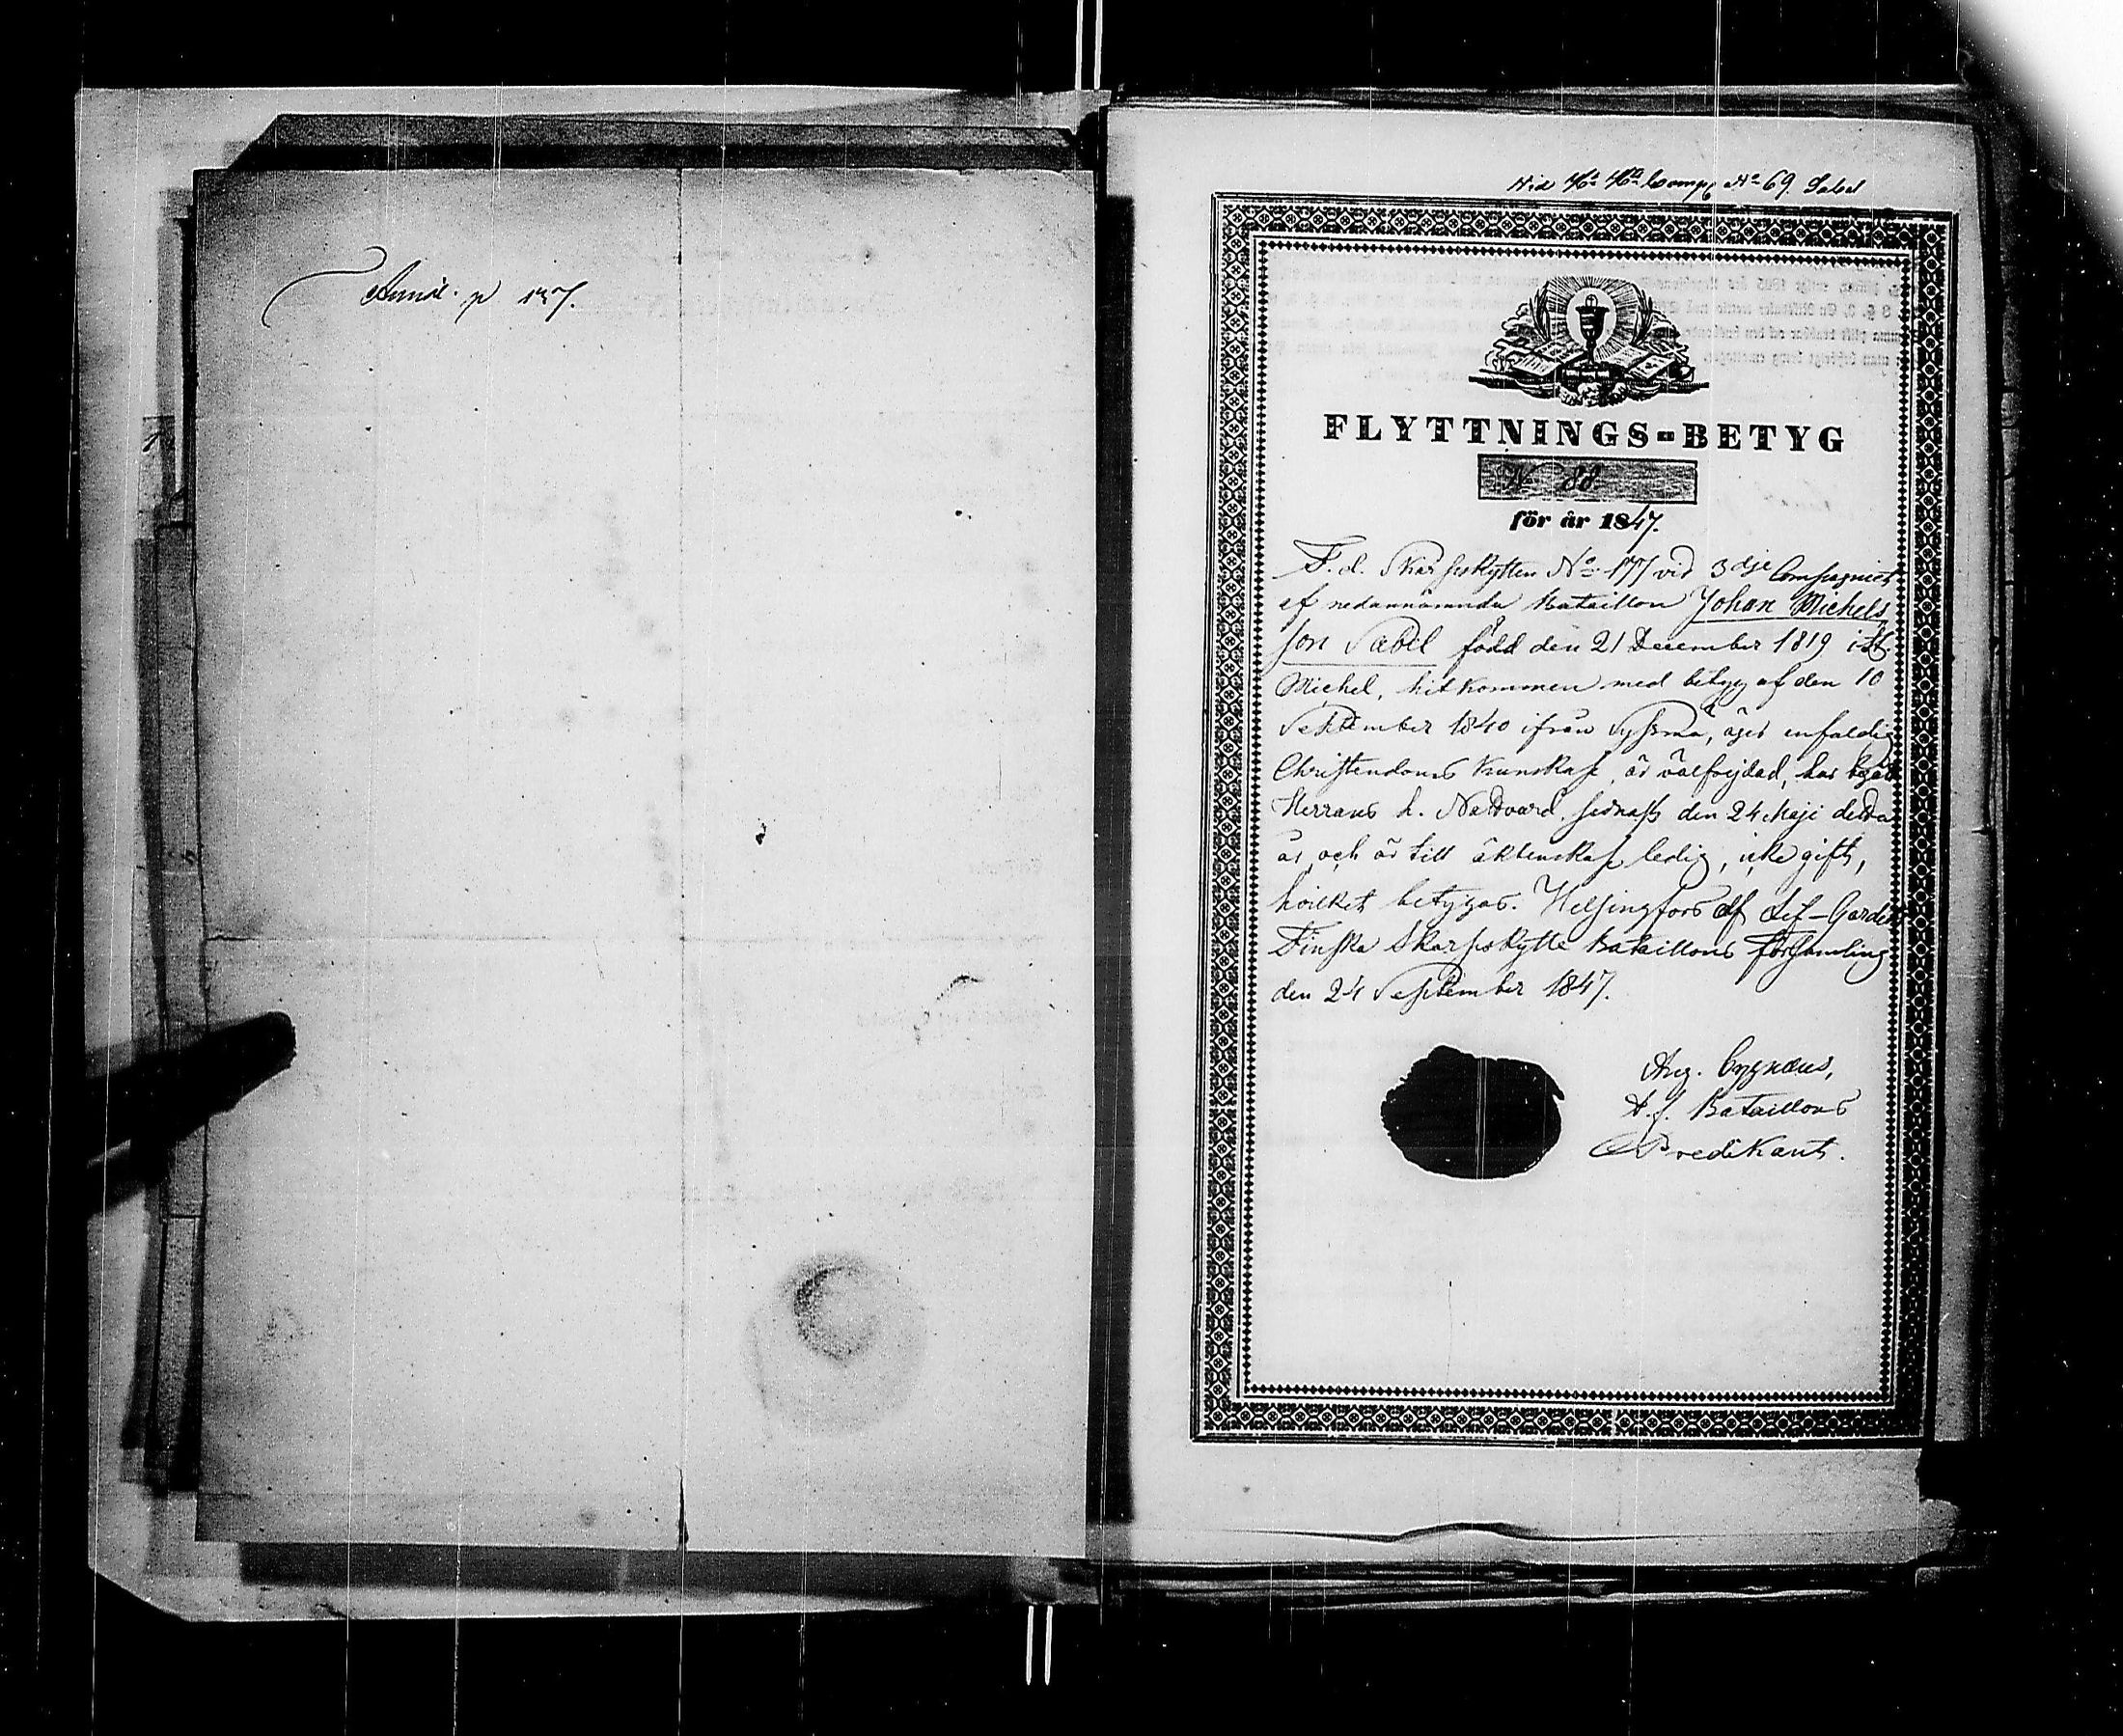 Anmäl. p 137.
Vid H. Ha Comp. No 69. Sabel
FLYTTNINGS-BETYG
No 88.
för år 1847.
F. d. Skarpskytten No 177 vid 3dje Compagniet
af nedannämnda Bataillon Johan Michels
son Sabel född den 21 December 1819 i St.
Michel, hitkommen med betyg af den 10
September 1840 ifrån Sysmä, äger enfaldig
Christendoms kunskap, är välfrejdad, har begått
Herrans h. Nattvard sednast den 24 Maji detta
år, och är till äktenskap ledig, icke gift,
hvilket betygas. Helsingfors af Lif-Gardets
Finska Skarpskytte Bataillons församling
den 24 September 1847.
Aug. Cygnæus,
t. f. Bataillons
Predikant.